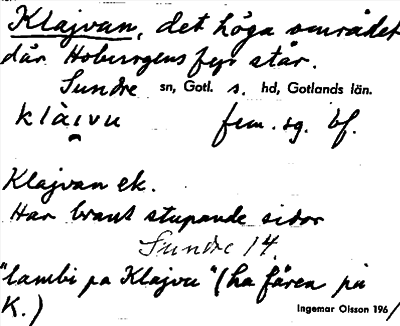 Klajvan, det höga området
där Hoburgens fyr står.
Sundre sn, Gotl. s. hd, Gotlands län.
klàivu fem. sg. bf.
Klajvan ek.
Har brant stupande sidor
Sundre 14.
"lambi pa Klajvu" (ha fåren på
K.)
Ingemar Olsson 1961